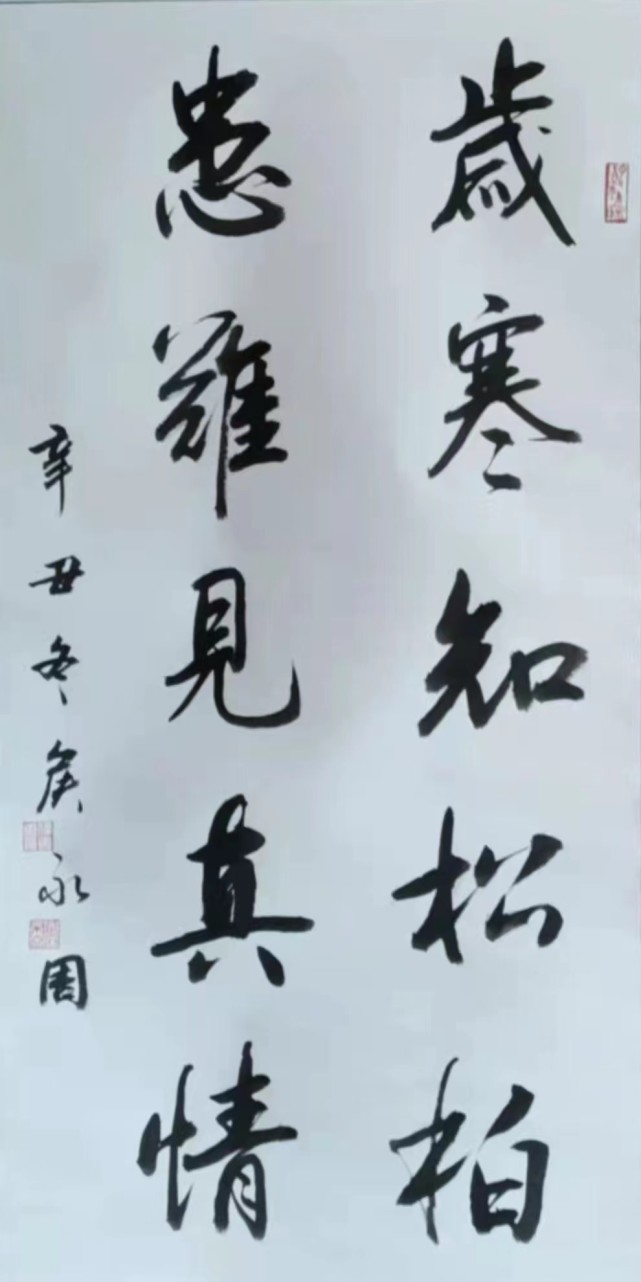 歲寒知松柏
患難見真情
辛丑冬侯永周